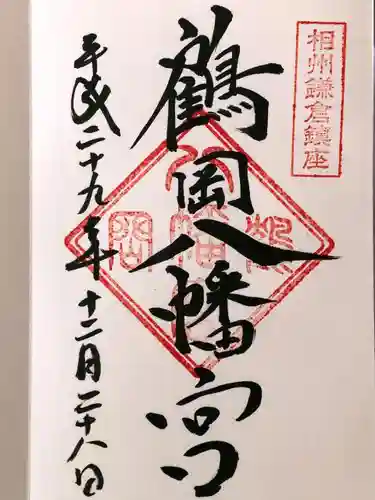 相州鎌倉鎮座
鶴岡八幡宮
平成二十九年十二月二十八日